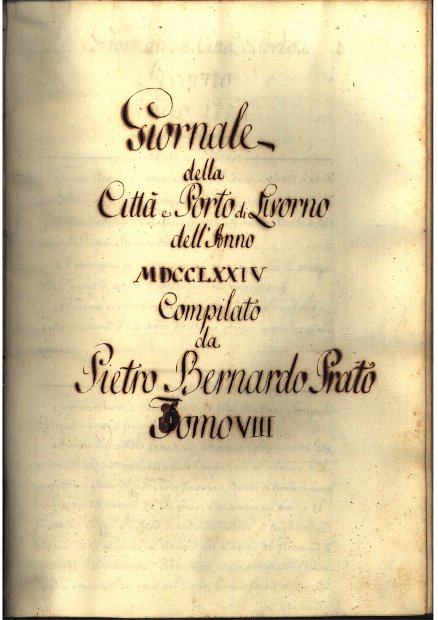 Giornale
della
Città e Porto di Livorno
dell'Anno
MDCCLXXIV
Compilato
da
Pietro Bernardo Prato
Tomo VIII